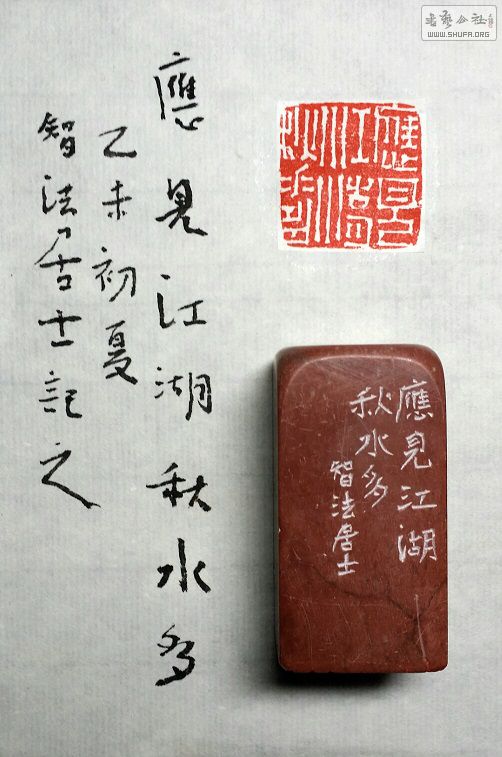 應見江湖秋水多
乙未初夏
智法居士記之
應見江湖秋水多
應見江湖
秋水多
智法居士
書藝公社
WWW.SHUFA.ORG